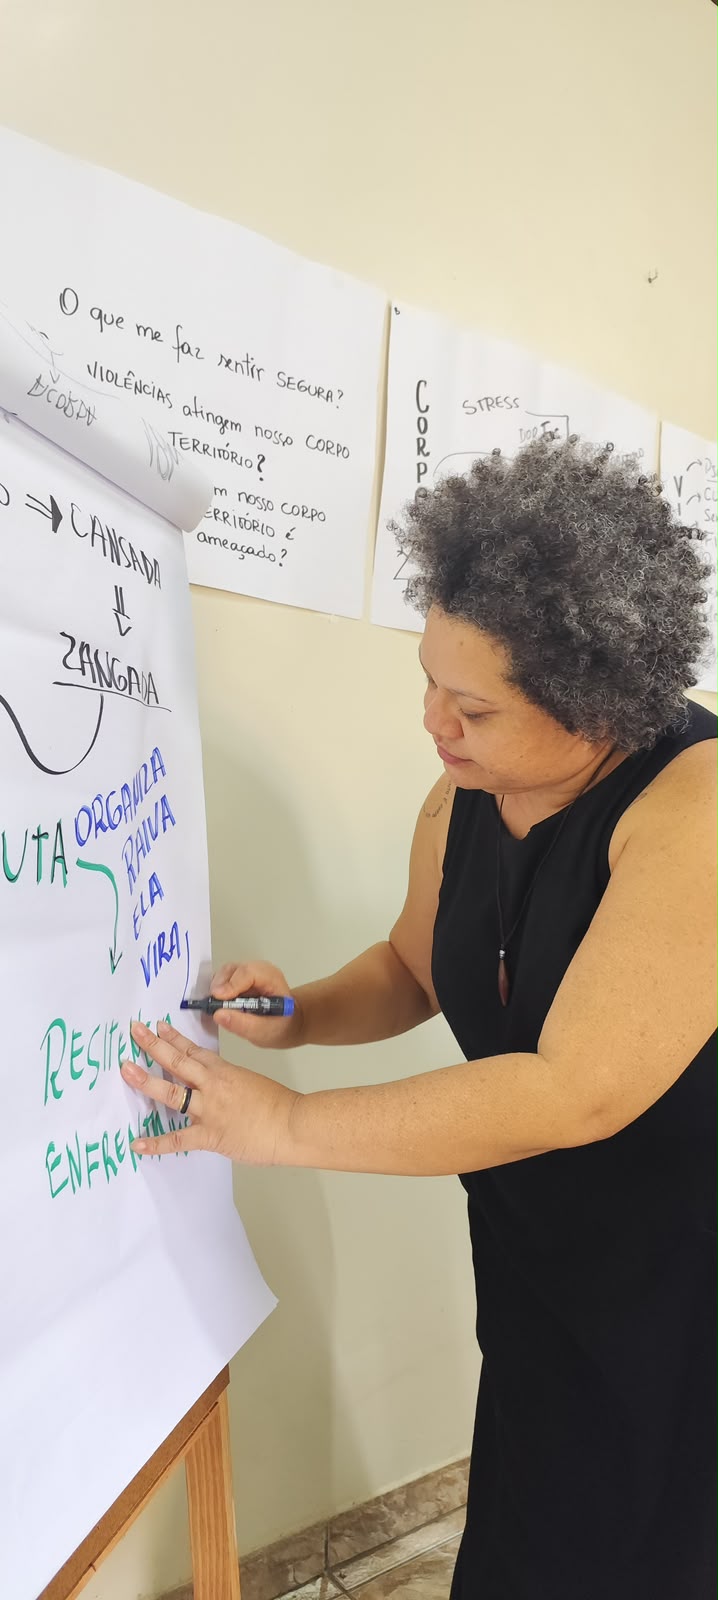 O que me faz sentir SEGURA?
VIOLÊNCIAS atingem nosso CORPO
TERRITÓRIO?
m nosso CORPO
ERRITÓRIO É
ameaçado?
CORP
STRESS
⇒ CANSADA
⇓
ZANGADA
UTA
ORGANIZA
RAIVA
ELA
VIRA
RESITENCIA
ENFRENTA